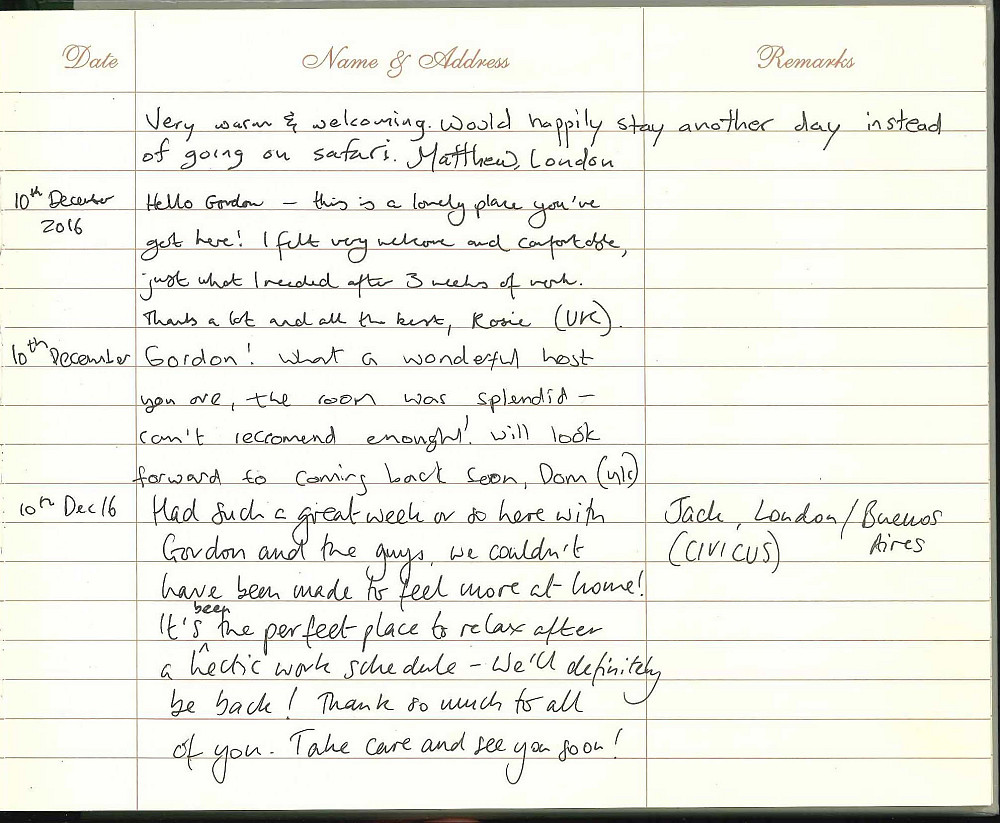 Date Name & Address Remarks
Very warm & welcoming. Would happily stay another day instead
of going on safari. Matthew, London
10th December
2016
Hello Gordon – this is a lovely place you've
got here! I felt very welcome and comfortable,
just what I needed after 3 weeks of work.
Thanks a lot and all the best, Rosie (UK).
10th December
Gordon! What a wonderful host
you are, the room was splendid –
can't recromend enought! will look
forward to coming back soon, Dom (UK)
10th Dec 16
Had such a great week or so here with
Gordon and the guys, we couldn't
have been made to feel more at home!
It's been the perfect place to relax after
a hectic work schedule – We'll definitely
be back! Thank so much to all
of you. Take care and see you soon!
Jack, London / Buenos
Aires
(CIVICUS)